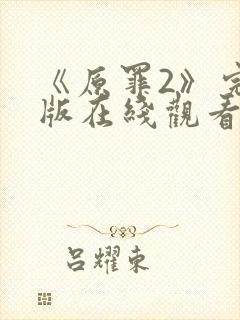 《原罪2》完
版在綫觀看
呂耀東